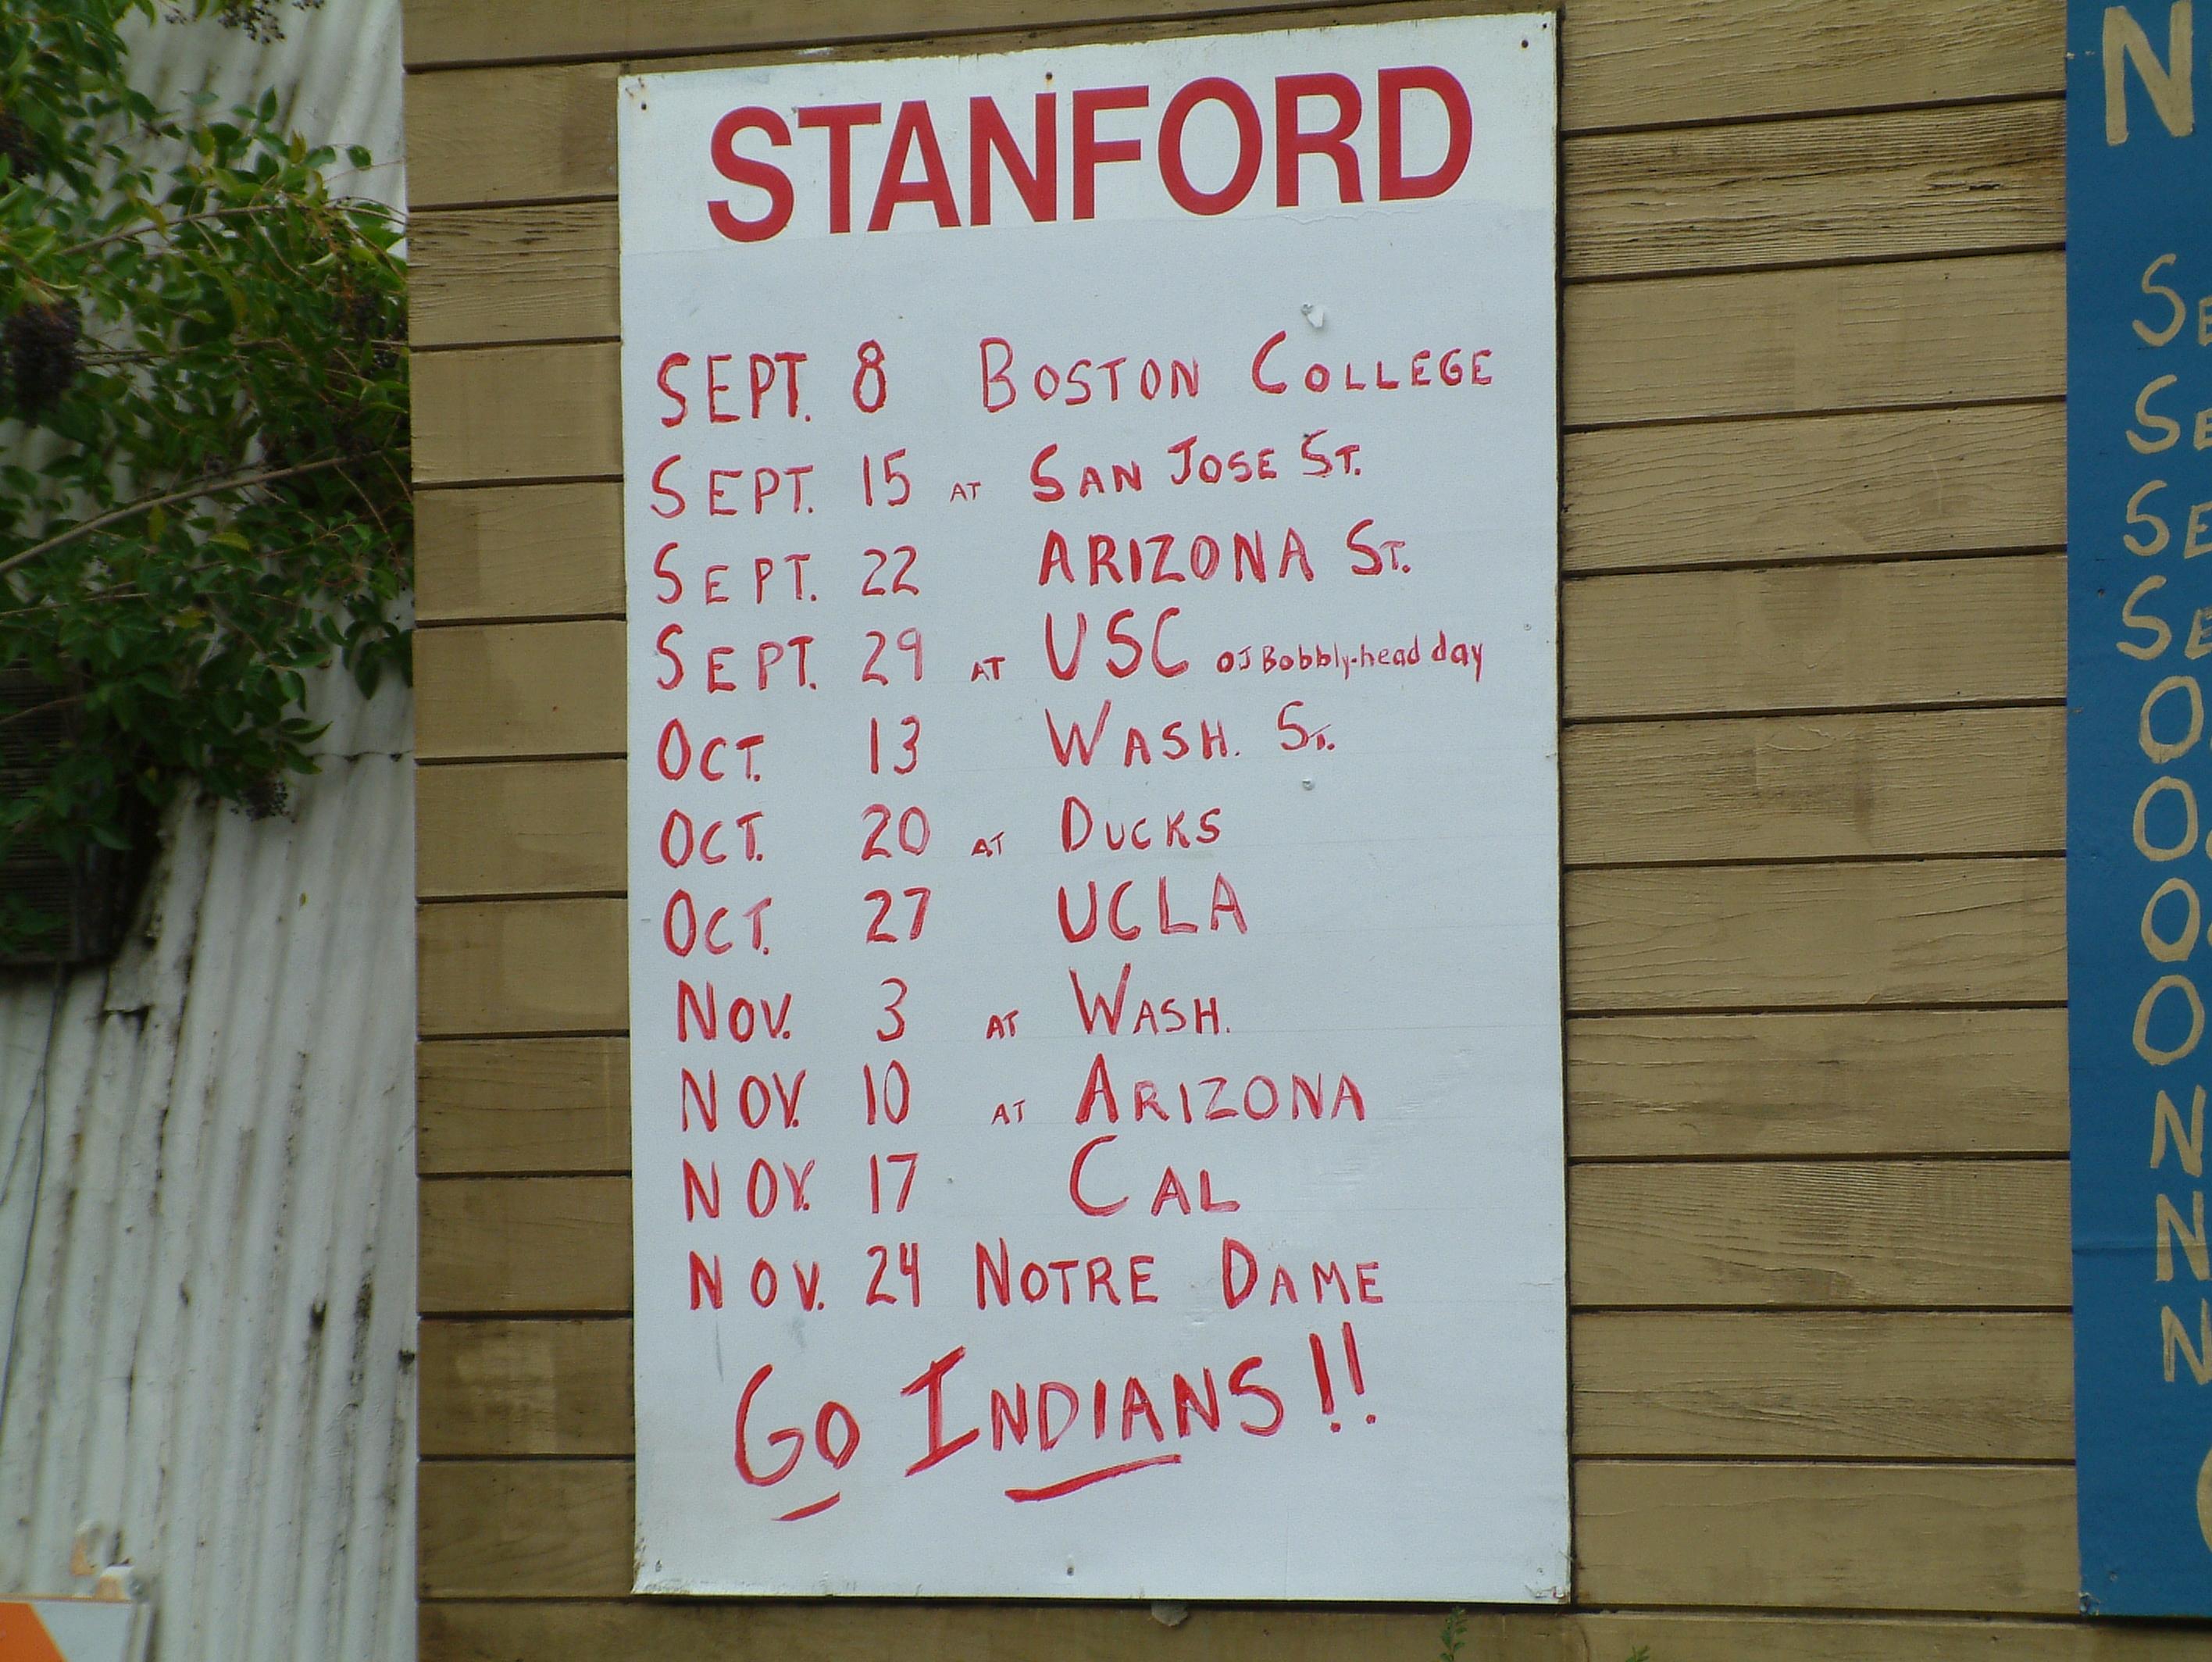 STANFORD
SEPT. 8 BOSTON COLLEGE
SEPT. 15 AT SAN JOSE ST.
SEPT. 22 ARIZONA ST.
SEPT. 29 AT USC OJ Bobbly-head day
OCT. 13 WASH. ST.
OCT. 20 AT DUCKS
OCT. 27 UCLA
NOV. 3 AT WASH.
NOV. 10 AT ARIZONA
NOV. 17 CAL
NOV. 24 NOTRE DAME
GO INDIANS!!